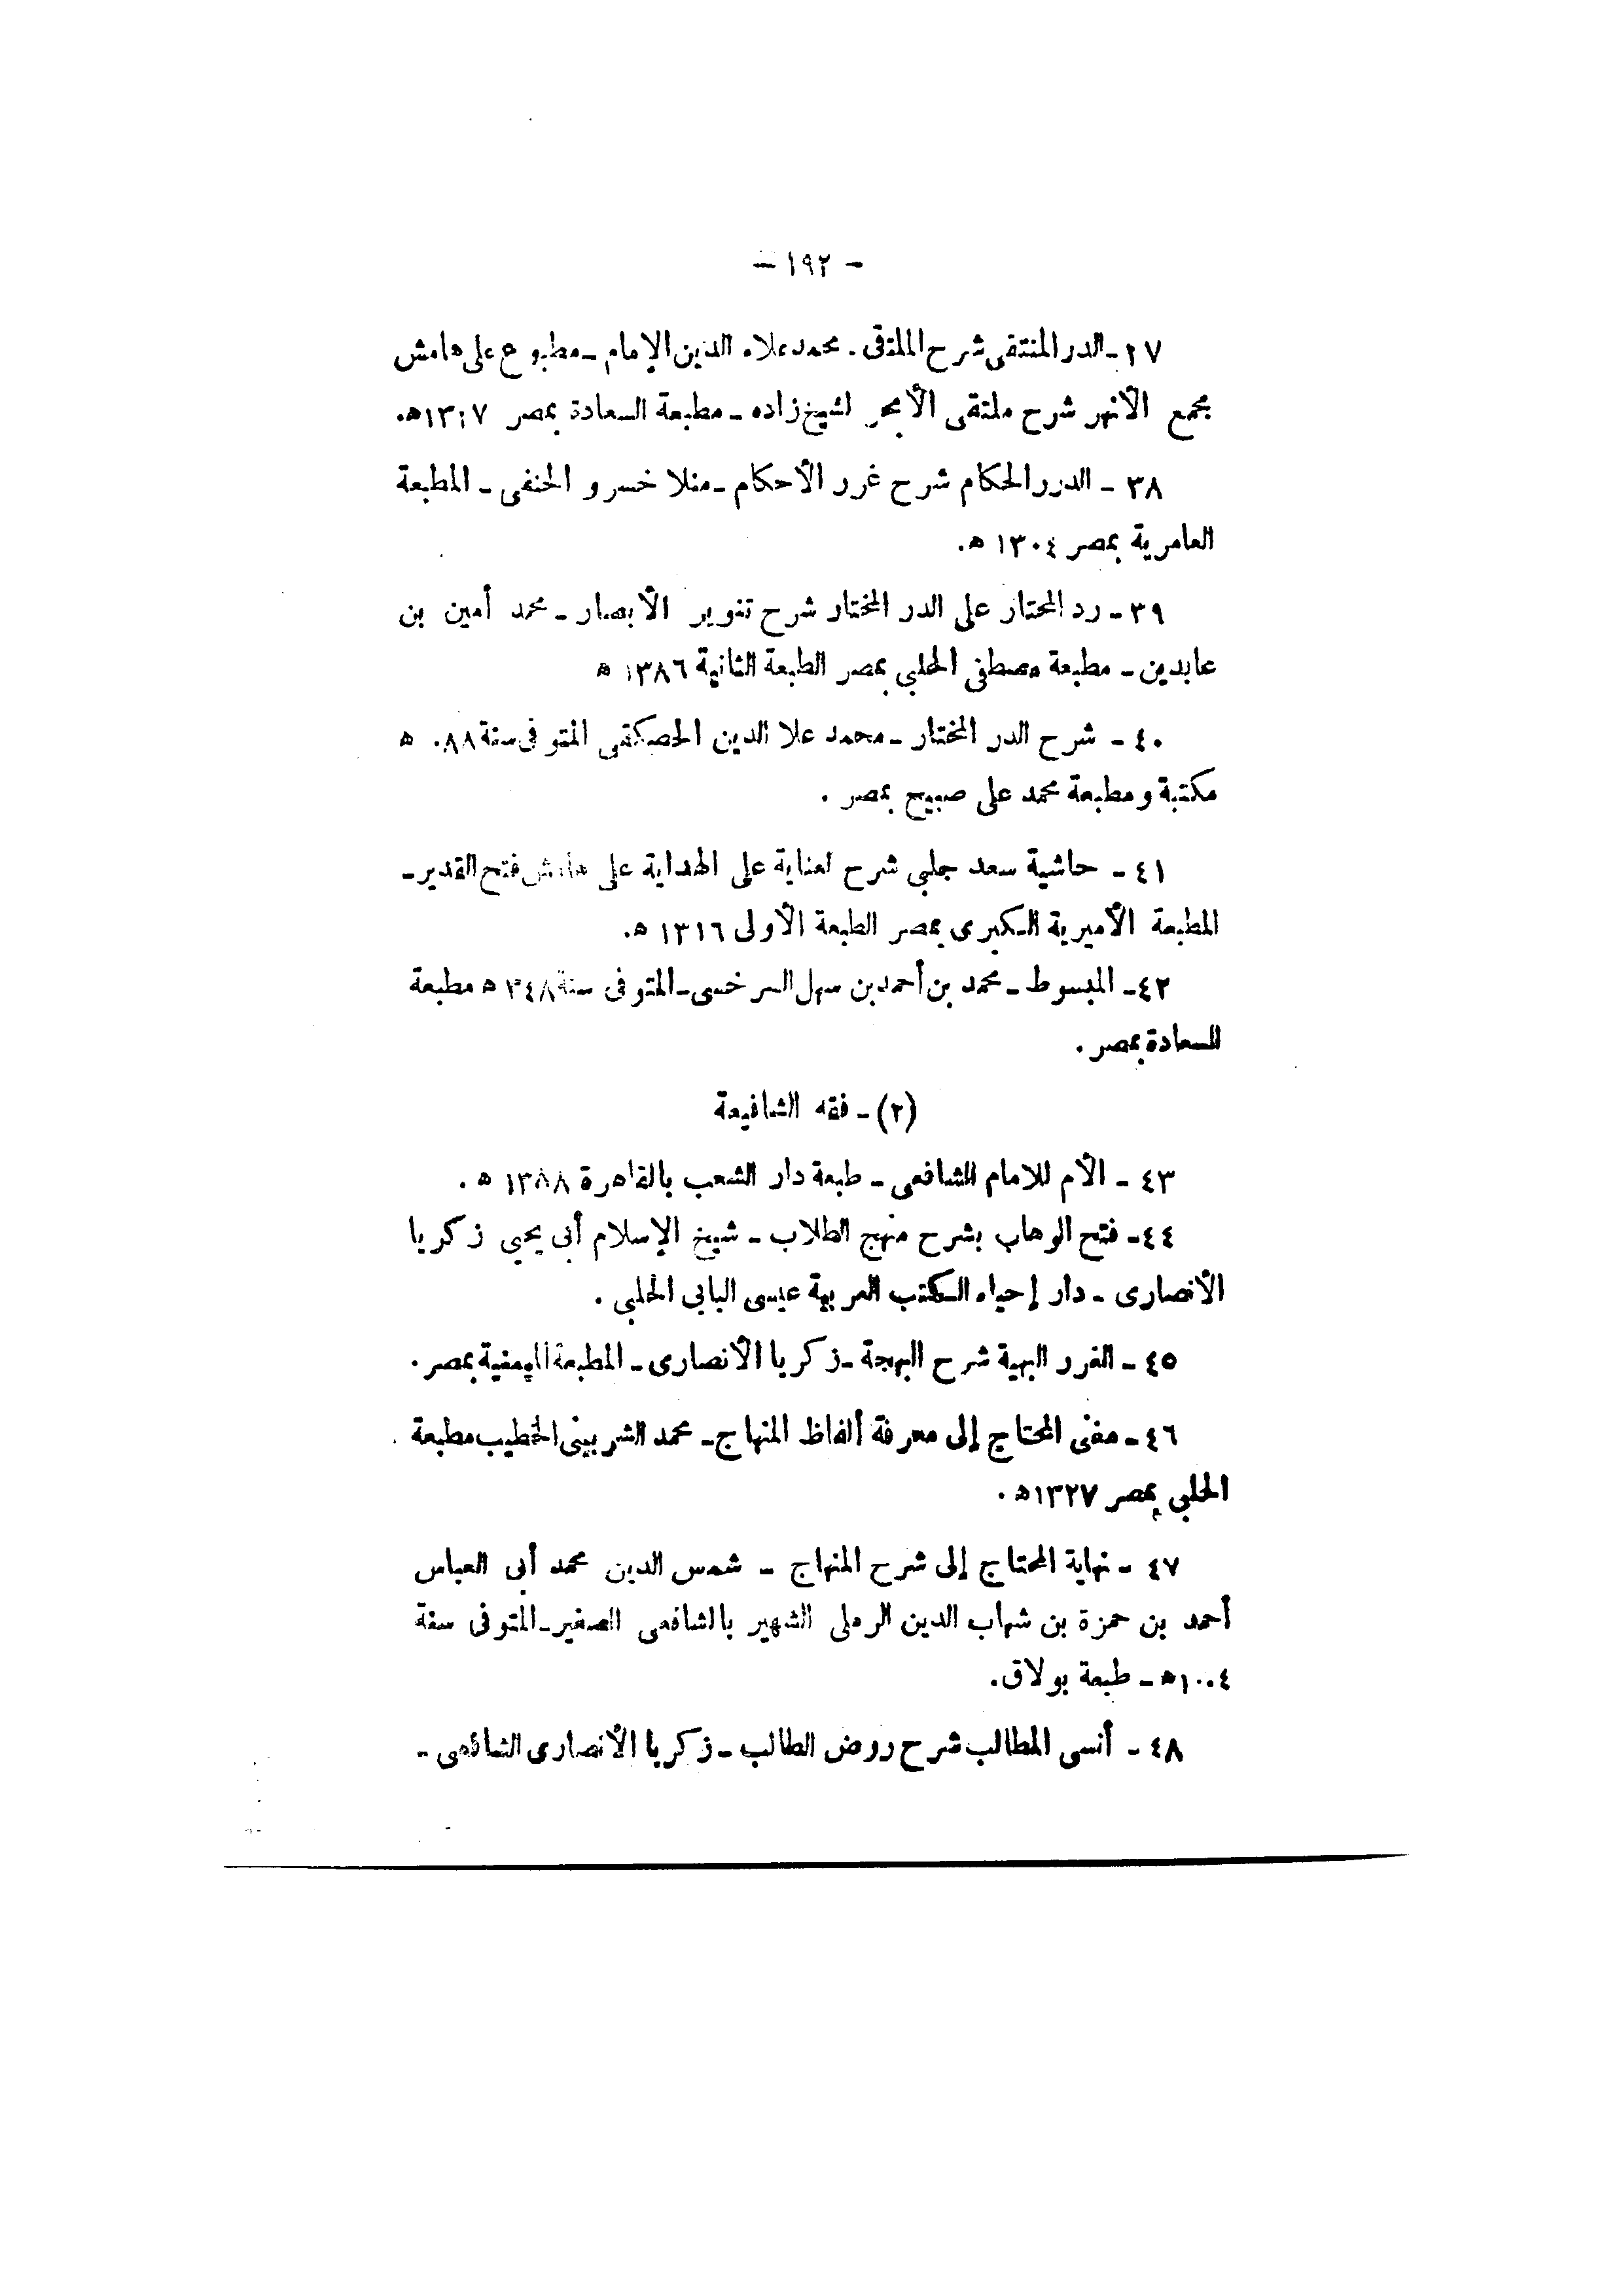 - ١٩٢ -
٢٧ - الدر المنتقى شرح الملتقى . محمد علاء الدين الإمام - مطبوع على هامش
مجمع الأنهر شرح ملتقى الأبحر لشيخ زاده - مطبعة السعادة بمصر هـ.
٣٨ - الدرر الحكام شرح غرر الأحكام - منلا خسرو الحنفى - المطبعة
العامرية بمصر ١٣٠٤ هـ.
٣٩ - رد المحتار على الدر المختار شرح تنوير الأبصار - محمد أمين بن
عابدين - مطبعة مصطفى الحلبي بمصر الطبعة الثانية ١٣٨٦ هـ
٤٠ - شرح الدر المختار - محمد علا الدين الحصكفى المتوفى سنة هـ
مكتبة ومطبعة محمد على صبيح بمصر .
٤١ - حاشية سعد جلبي شرح لعناية على الهداية على هامش فتح القدير -
المطبعة الأميرية الكبرى بمصر الطبعة الأولى ١٣١٦ هـ.
٤٢ - المبسوط - محمد بن أحمد بن سهل السرخسى - المتوفى سنة هـ مطبعة
السعادة بمصر .
(٢) - فقه الشافيعة
٤٣ - الأم للامام الشافعى - طبعة دار الشعب بالقاهرة ١٣٨٨ هـ .
٤٤ - فتح الوهاب بشرح منهج الطلاب - شيخ الإسلام أبى يحيى زكريا
الأنصارى - دار إحياء الكتب العربية عيسى البابى الحلبي .
٤٥ - الغرر البهية شرح البهجة - زكريا الأنصارى - المطبعة اليمنية بمصر .
٤٦ - مغنى المحتاج إلى معرفة ألفاظ المنهاج - محمد الشربينى الخطيب مطبعة
الحلبي بمصر ١٣٢٧ هـ .
٤٧ - نهاية المحتاج إلى شرح المنهاج - شمس الدين محمد أبى العباس
أحمد بن حمزة بن شهاب الدين الرملى الشهير بالشافعى الصغير - المتوفى سنة
١٠٠٤ هـ - طبعة بولاق.
٤٨ - أنسى المطالب شرح روض الطالب - زكريا الأنصارى الشافعى -